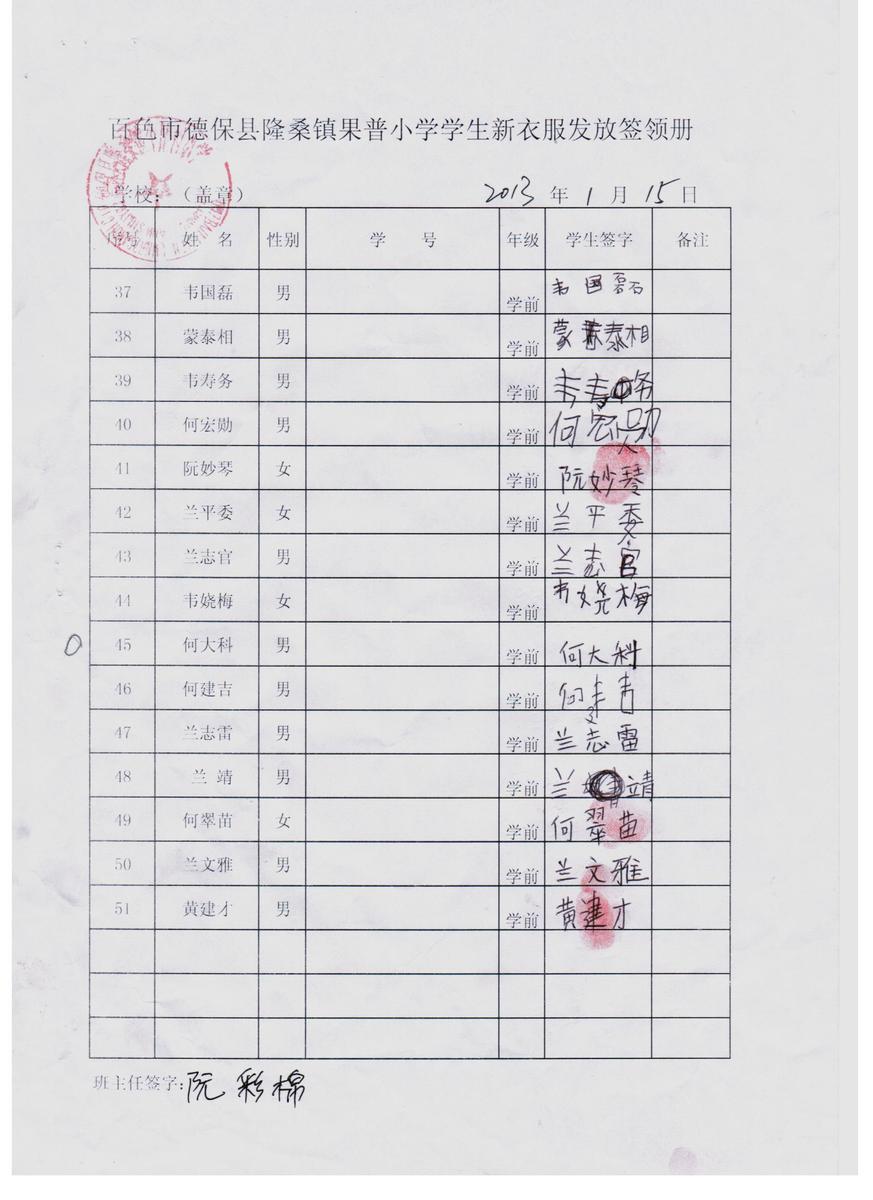 百色市德保县隆桑镇果普小学学生新衣服发放签领册
学校：（盖章） 2013 年 1 月 15 日
序号 姓 名 性别 学 号 年级 学生签字 备注
37 韦国磊 男 学前 韦国磊
38 蒙泰相 男 学前 蒙泰相
39 韦寿务 男 学前 韦寿务
40 何宏勋 男 学前 何宏勋
41 阮妙琴 女 学前 阮妙琴
42 兰平委 女 学前 兰平委
43 兰志官 男 学前 兰志官
44 韦娆梅 女 学前 韦娆梅
45 何大科 男 学前 何大科
46 何建吉 男 学前 何
47 兰志雷 男 学前 兰志雷
48 兰 靖 男 学前 兰靖
49 何翠苗 女 学前 何翠苗
50 兰文雅 男 学前 兰文雅
51 黄建才 男 学前 黄建才
班主任签字：阮彩棉